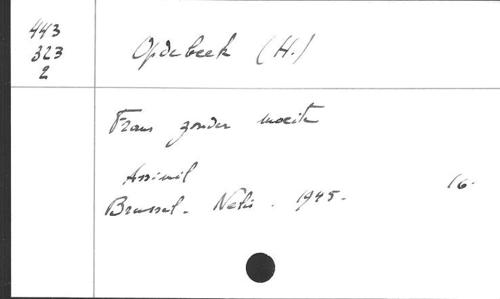 443
323
2
Opdebeek (H.)
Frans zonder moeite
Assimil
Brussel. Nelis. 1945. 16.